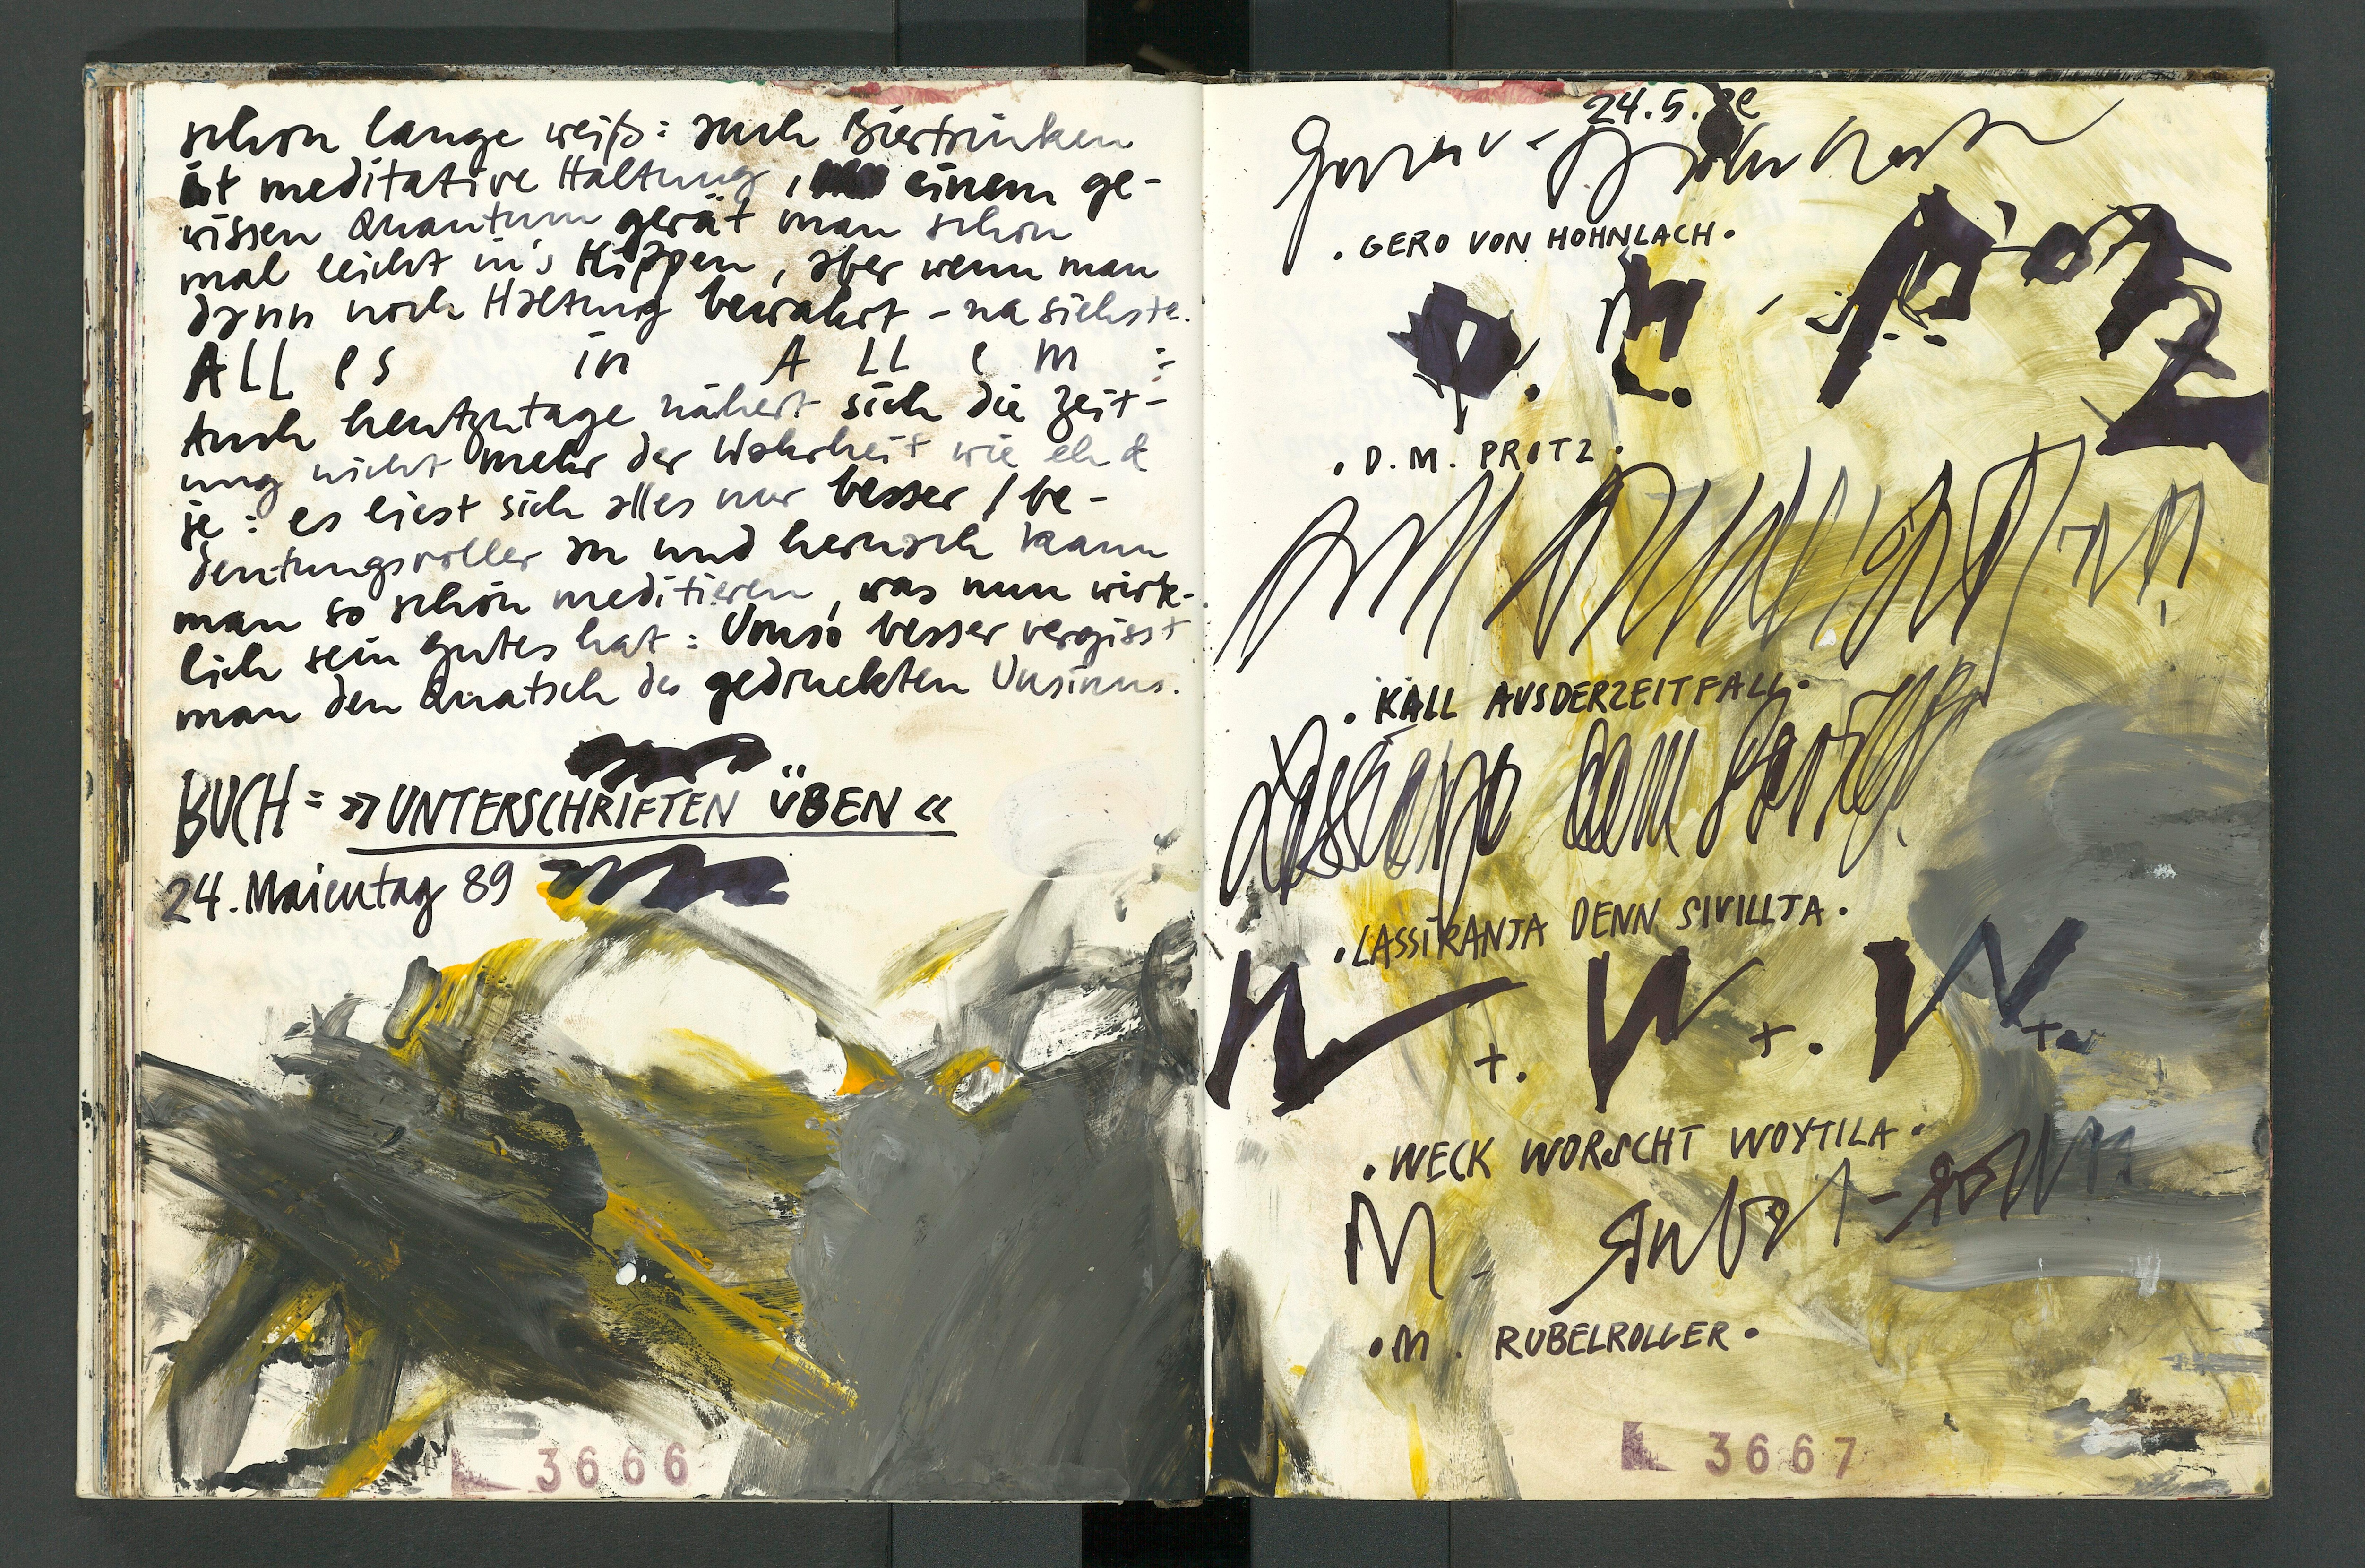 schon lange weiß: auch Biertrinken
ist meditative Haltung, einem ge-
wissen Quantum gerät man schon
mal leicht in's Kippen, aber wenn man
dann noch Haltung bewahrt - na siehste.
ALL es in A LL e m :
Auch heutzutage nähert sich die Zeit-
ung nicht mehr der Wahrheit wie eh &
je: es liest sich alles nur besser / be-
deutungsvoller an und hernach kann
man so schön meditieren, was nun wirk-
lich sein gutes hat: Umso besser vergisst
man den Quatsch des gedruckten Unsinns.
BUCH = »UNTERSCHRIFTEN ÜBEN«
24. Maientag 89
3666
24.5.
. GERO VON HOHNLACH.
. D. M. PROTZ.
. KALL AUSDERZEITFALL.
. LASSIRANJA DENN SIVILLJA.
W +. W +. W +
. WECK WORSCHT WOYTILA.
. M. RUBELROLLER.
3667